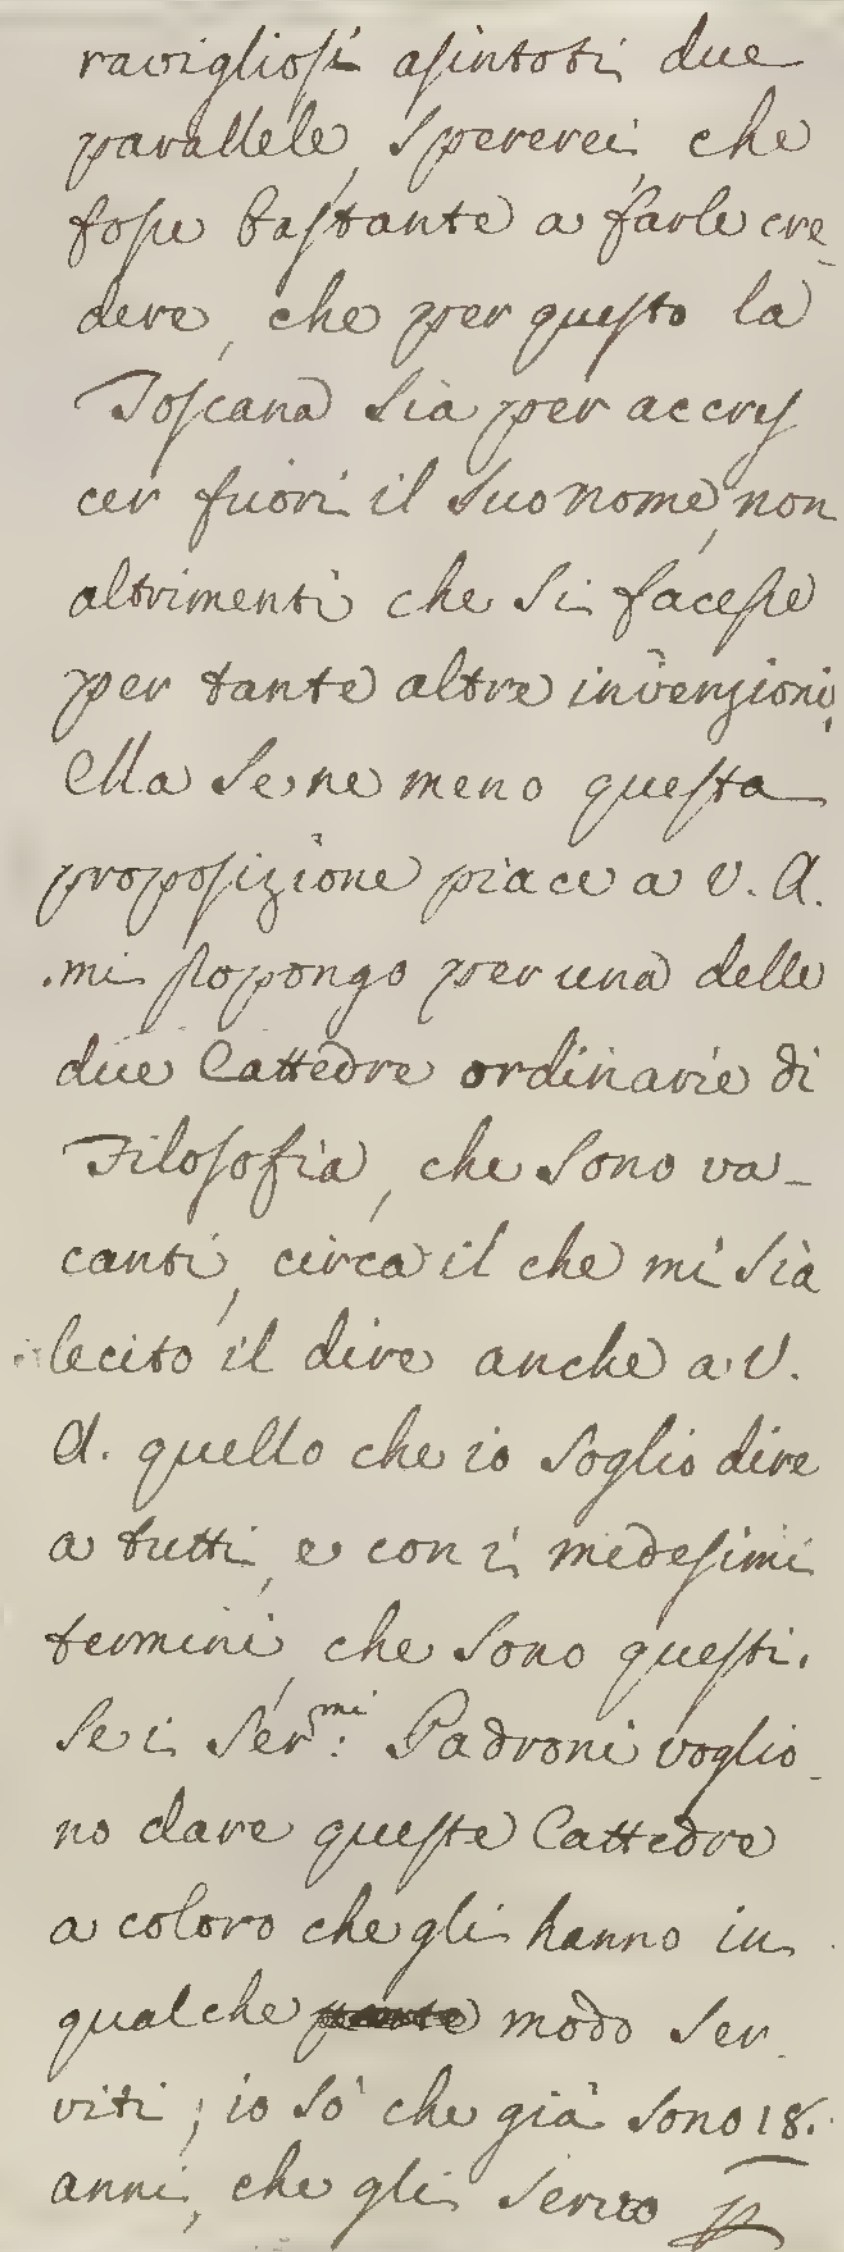 ravigliosi asintoti due
parallele, spererei, che
fosse bastante a farle cre-
dere, che per questo la
Toscana sia per accres
cer fuori il suo nome, non
altrimenti che si facesse
per tante altre invenzioni,
Ma se ne meno questa
proposizione piace a V. A.
mi propongo per una delle
due Cattedre ordinarie di
Filosofia, che sono va-
canti, circa il che mi sia
lecito il dire anche a V.
A. quello che io soglio dire
a tutti, e con i medesimi
termini, che sono questi.
Se i Ser.mi Padroni voglio-
no dare queste Cattedre
a coloro che gli hanno in
qualche modo ser-
viti; io sò che già sono 18.
anni, che gli servo